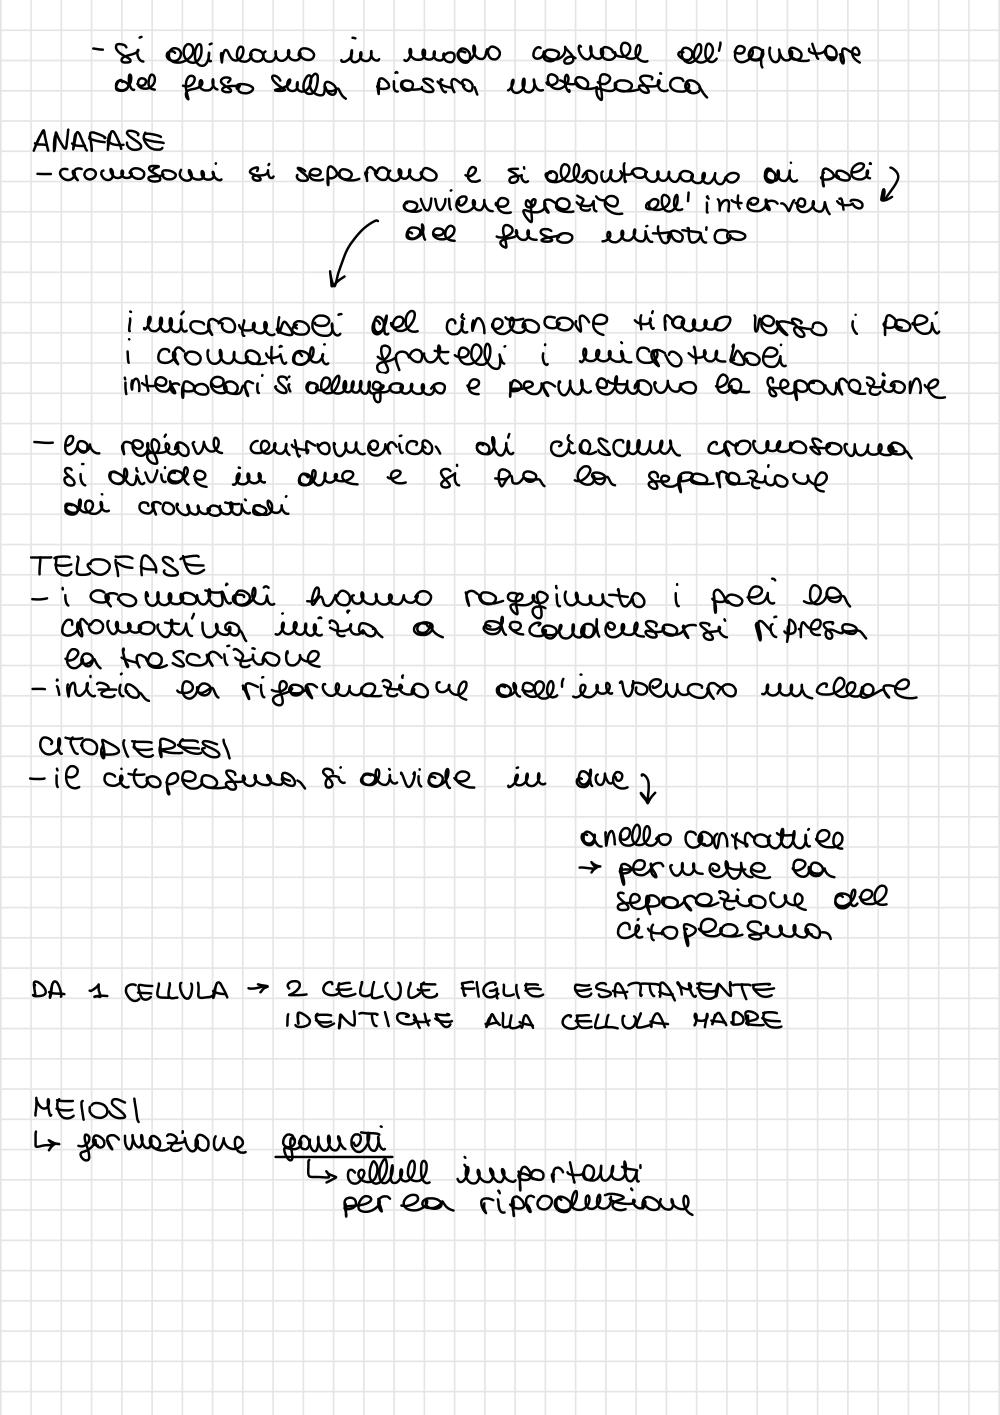 - si allineano in modo casuale all'equatore
del fuso sulla piastra metafasica
ANAFASE
- cromosomi si separano e si allontanano ai poli
avviene grazie all'intervento
del fuso mitotico
i microtuboli del cinetocore tirano verso i poli
i cromatidi fratelli i microtuboli
interpolari si allungano e permettono la separazione
- la regione centromerica di ciascun cromosoma
si divide in due e si ha la separazione
dei cromatidi
TELOFASE
- i cromatidi hanno raggiunto i poli la
cromatina inizia a decondensarsi ripresa
la trascrizione
- inizia la riformazione dell'involucro nucleare
CITODIERESI
- il citoplasma si divide in due
anello contrattile
→ permette la
separazione del
citoplasma
DA 1 CELLULA → 2 CELLULE FIGLIE ESATTAMENTE
IDENTICHE ALLA CELLULA MADRE
MEIOSI
↳ formazione gameti
↳ cellule importanti
per la riproduzione